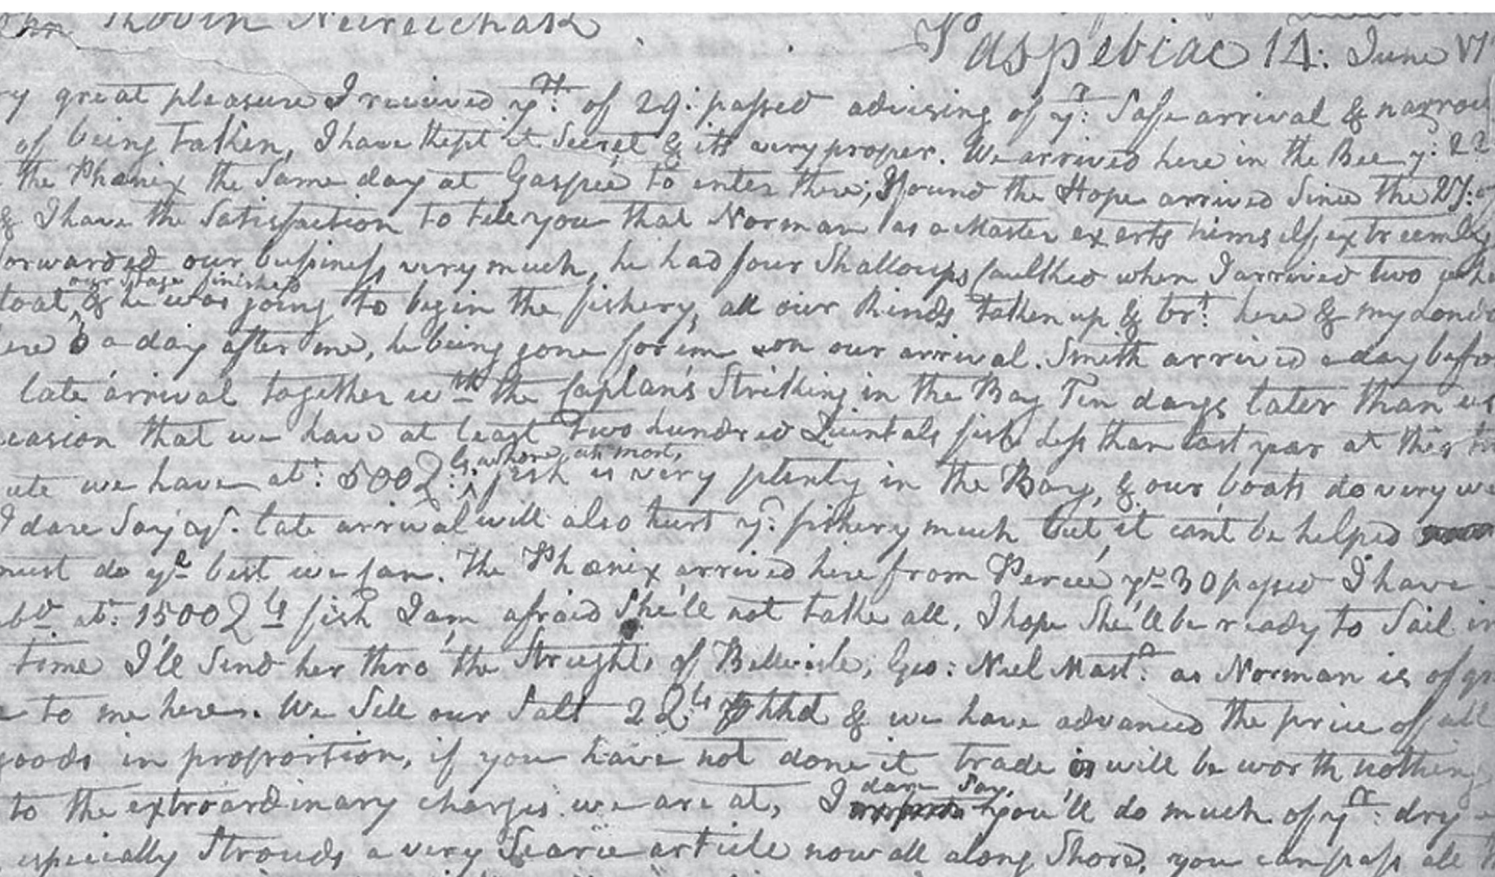 Robin Neireichak
Paspebiac 14: June 17
ry great pleasure I received yrs: of 29: passed advising of yr: Safe arrival & narrow
of being Taken, I have Kept it Secret & its very proper. We arrived here in the Bee y: 22
the Phœnix the Same day at Gaspée to enter there; I found the Hope arrived Since the 27:
& I have the Satisfaction to tell you that Norman as a Master exerts himself extreemly
forwarded our bussiness very much, he had four Shalloups caulked when I arrived two
boat, our Stage finished & he was going to begin the fishery, all our Kinds taken up & brt: here & my
here a day after me, he being gone for em on our arrival. Smith arrived a day befo
late arrival together wth the Caplan's Striking in the Bay Ten days later than us
ccasion that we have at least Two hundred Quintals fish Less than Last year at this
ute we have at: 500 Qls ashore at most, fish is very plenty in the Bay, & our boats do very we
I dare Say yr. late arrival will also hurt yr: fishery much but it can't be helped
must do ye best we can. The Phœnix arrived here from Percée ye 30 passed I have
bd at: 1500 Qls fish I am afraid She'll not take all, I hope She'll be ready to Sail in
time I'll Send her thro' the Streights of Belleisle, Geo: Neel Mastr: as Norman is of gr
to me here. We Sell our Salt 2 Qls p hhd & we have advanced the price of all
goods in proportion, if you have not done it trade will be worth nothing
to the extraordinary charges we are at, I dare Say you'll do much of yr: dry
especially Strouds a very Scarce article now all along Shore, you can pass all